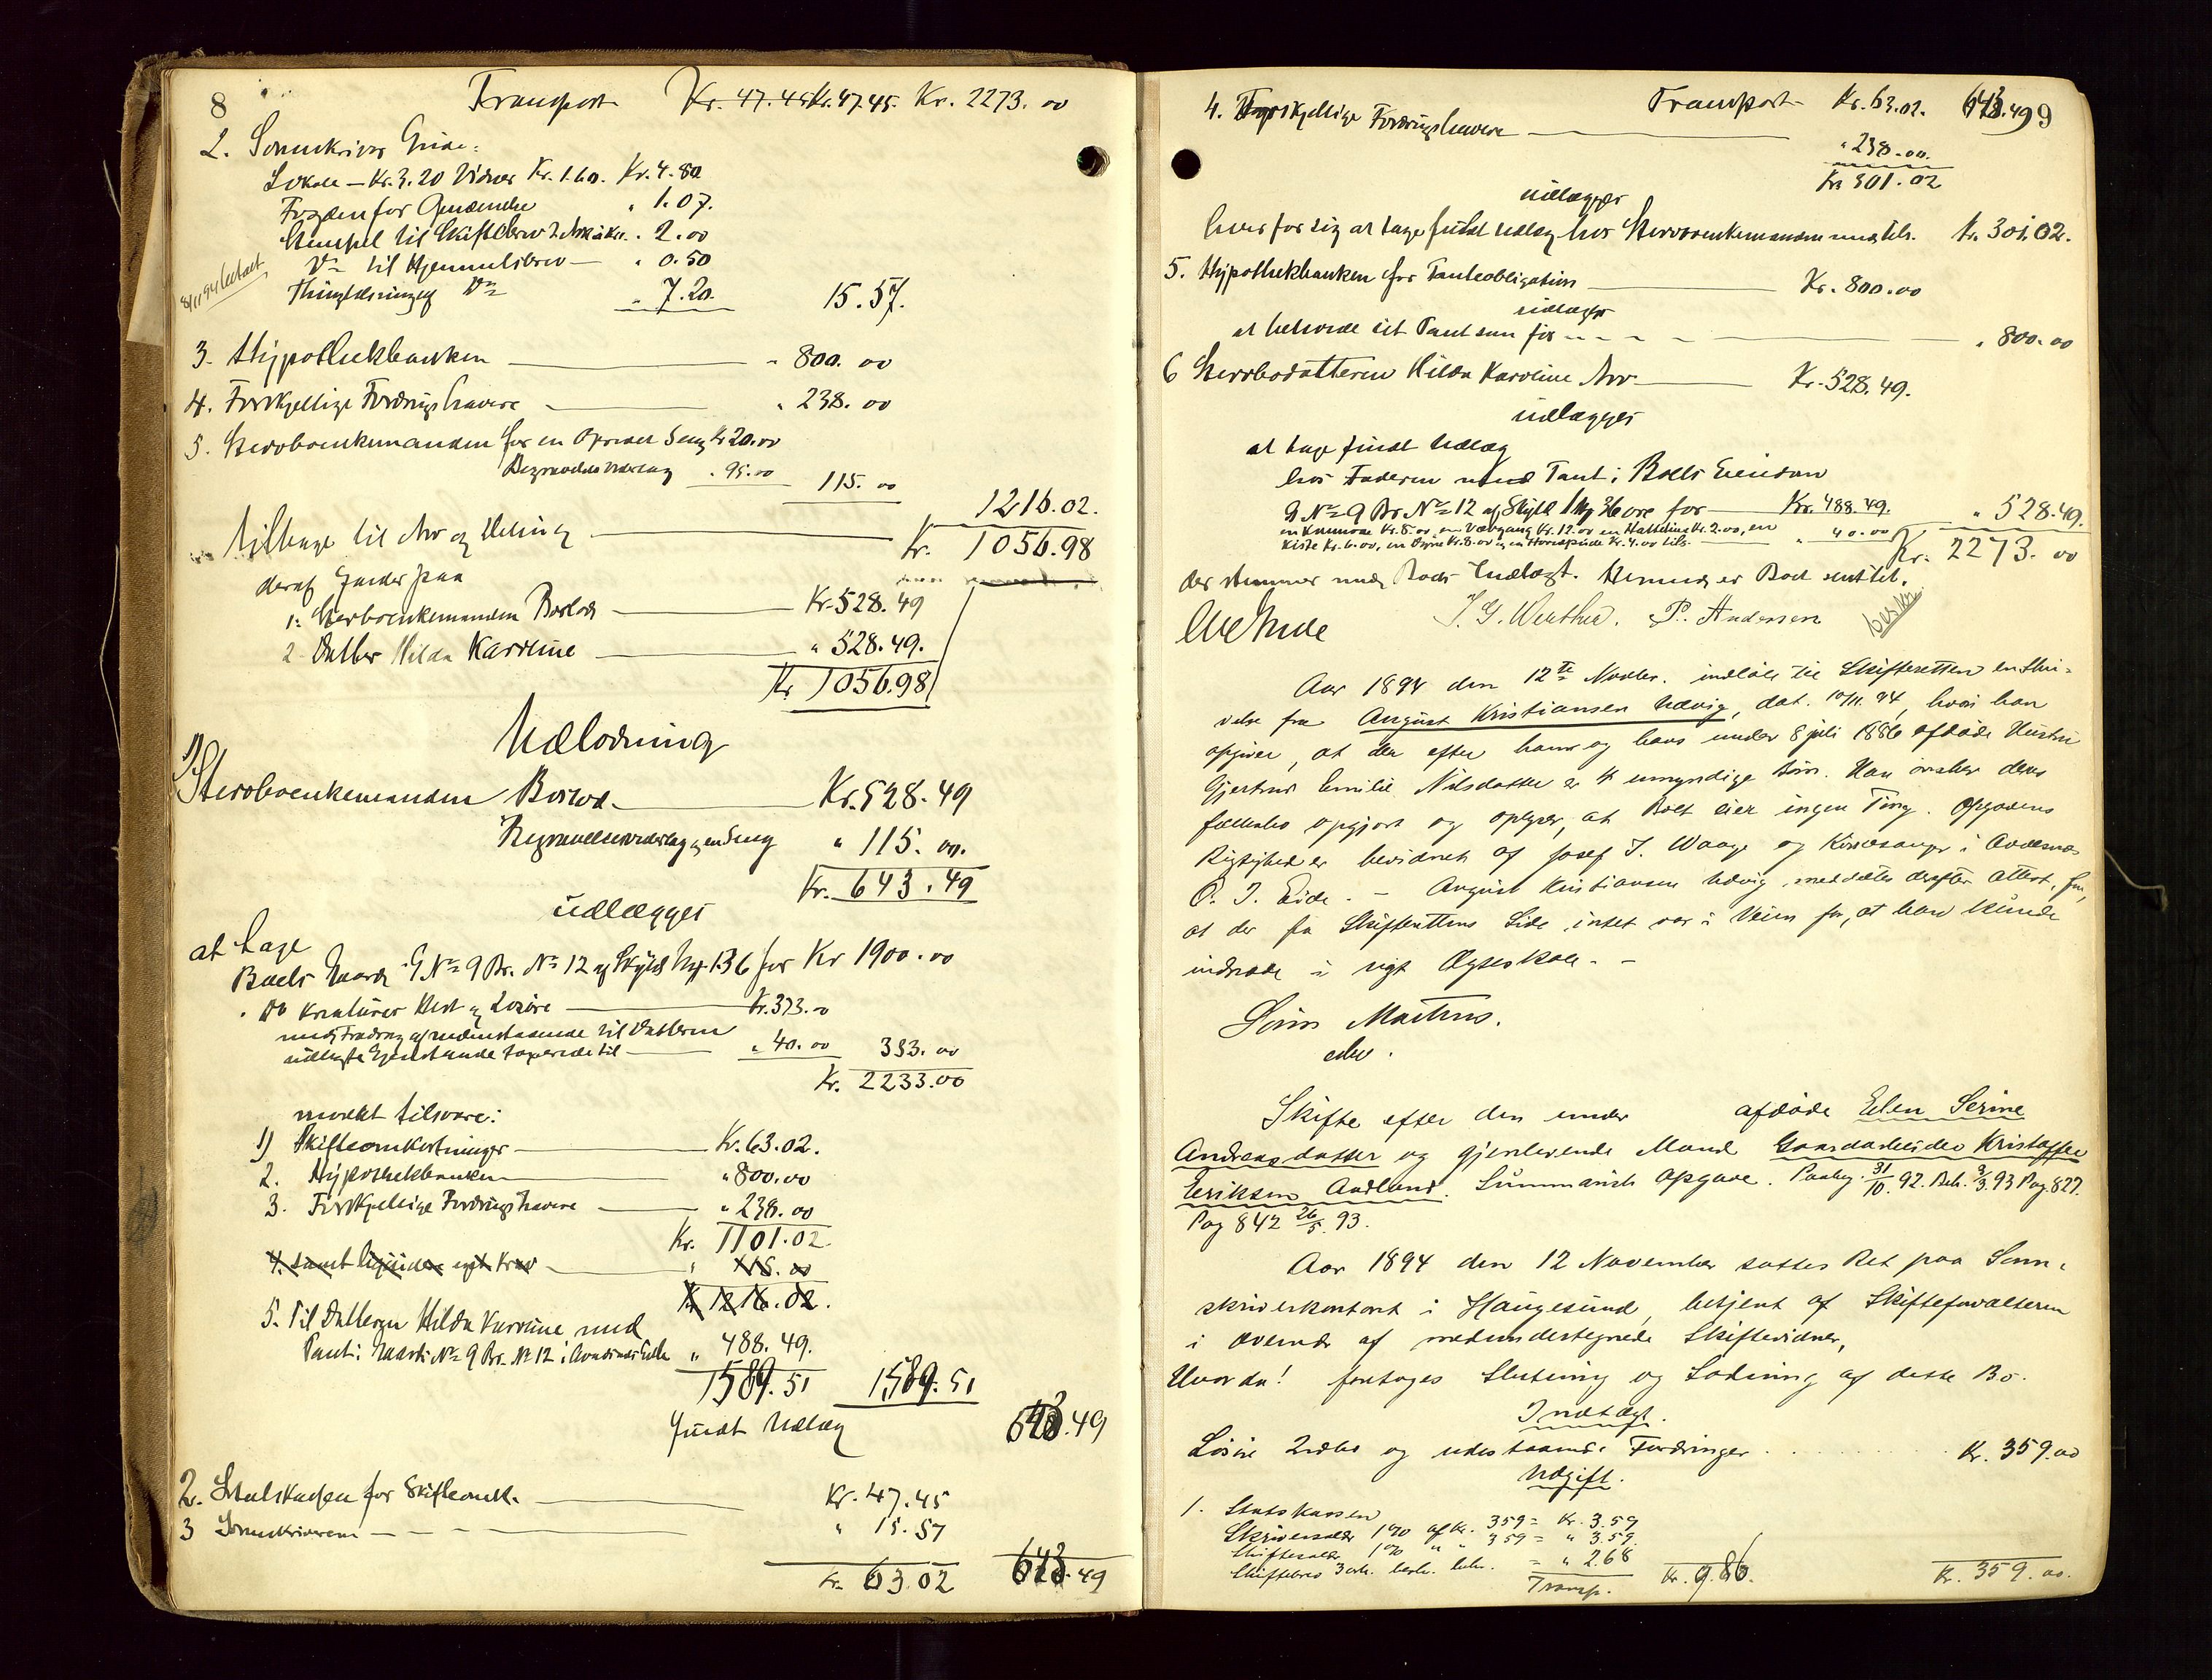 8
Transport Kr. 47.45 Kr. 47.45. Kr. 2273. 00
2. Sorenskriver Grude:
Lokale — Kr. 3.20 Vidner Kr. 1.60. Kr. 4.80
Fogden for " 1.07.
Stempel til Skiftebrev " 2.00
Do til Hjemmelsbrev — " 0.50
8/11 94 betalt
Thinglæsning af Do " 7.20. 15.57.
3. Hypothekbanken — " 800. 00
4. Forskjellige Fordringshavere — " 238. 00
5. Stervboenkemanden for en Opredt Seng Kr 20.00
Begravelsesvederlag " 95.00 115. 00
1216.02.
tilbage til Arv og Deling — Kr. 1056.98
deraf falder paa
1. Stervboenkemanden Boslod — Kr. 528.49
2. Datter Hilda Karoline — " 528.49.
Kr 1056.98
Udlodning
1) Stervboenkemanden Boslod — Kr. 528.49
Begravelsesvederlag og en Seng " 115. 00.
Kr. 643.49
udlægges
at tage
Boets Gaard G No 9 Br. No 12 af Skyld Mk 1.36 for Kr 1900.00
" Do Kreaturer Hest og Løsøre — Kr. 373.00
med Fradrag af nedenstaaende til Datteren
udlagte Gjenstande taxerede til — " 40.00 333.00
Kr. 2233.00
modat tilsvare:
1) Skifteomkostninger — Kr. 63.02.
2. Hypothekbanken — " 800.00
3. Forskjellige Fordringshavere — " 238.00
Kr. 1101.02
4. samt — " 115.00
Kr 1216.02.
5. Til Datteren Hilda Karoline med
Pant i Gaards No 9 Br. No 12 i " 488.49.
1589.51 1589.51
fuldt Udlæg 643.49
2. Statskassen for Skifteomk. — Kr. 47.45
3 Sorenskriveren — " 15.57
Kr. 63.02 643.49
9
Transport Kr. 63.02. 643.49
4. Forskjellige Fordringshavere — " 238.00.
Kr 301.02
udlægges
hver for sig at tage fuldt Udlæg hos Stervboenkemanden med tils. Kr. 301.02.
5. Hypothekbanken for Panteobligation — Kr. 800.00
udlægges
at beholde sit Pant som før — " 800.00
6 Stervbodatteren Hilda Karoline Arv — Kr. 528.49.
udlægges
at tage fuldt Udlæg
hos Faderen med Pant i Boets Eiendom
G No 9 Br No 12 af Skyld 1 Mk 36 øre for — Kr. 488.49.
en Kommode Kr. 8.00, en Kr. 12.00 en Kr. 2.00, en
Kiste Kr. 6.00, en Dyne Kr. 8.00 og en Hovedpude Kr. 4.00 tils. — " 40.00 " 528.49.
Kr. 2273. 00
der stemmer med Boets Indtægt. Hermed er Boet sluttet.
Grude J. G. Wuthu. P. Andersen
Aar 1894 den 12te Novbr. indløb til Skifteretten en Skri-
velse fra August Kristiansen Udvig, dat. 10/11. 94, hvori han
opgiver, at der efter ham og hans under 8 juli 1886 afdøde Hustru
Gjertrud Emilie Nilsdatter er 4 umyndige Børn. Han ønsker deres
fællesbo opgjort og oplyser, at Boet eier ingen Ting. Opgavens
Rigtighed er bevidnet af Josef J. Waage og Kirkesanger i Avaldsnæs
O. J. Eide. — August Kristiansen Udvig meddeltes derefter Attest for,
at der fra Skifterettens Side intet var i Veien for, at han kunde
indtræde i nyt Ægteskab. —
Sønn Martens.
edv.
Skifte efter den under afdøde Elen Serine
Andreasdatter og gjenlevende Mand Gaardarbeider Kristoffer
Eriksen Audland. Summarisk Opgave. Paabeg. 31/10. 92. Beh. 9/3. 93 Pag. 827.
Pag 842 26/5. 93.
Aar 1894 den 12 November sattes Ret paa Soren-
skriverkontoret i Haugesund, betjent af Skifteforvalteren
i overvær af medundertegnede Skiftevidner,
Hvorda! foretoges Slutning og Lodning af dette Bo.
Indtægt.
Løsøre Indbo og udestaaende Fordringer . . . . . . . Kr. 359.00
Udgift.
1. Statskassen
Skriversalær 1% af Kr. 359 = Kr. 3.59
Skiftesalær 1% " " 359 = " 3.59.
Skiftebrev 3 ark. = " 2.68
Transp. Kr. 9.86. Kr. 359.00.